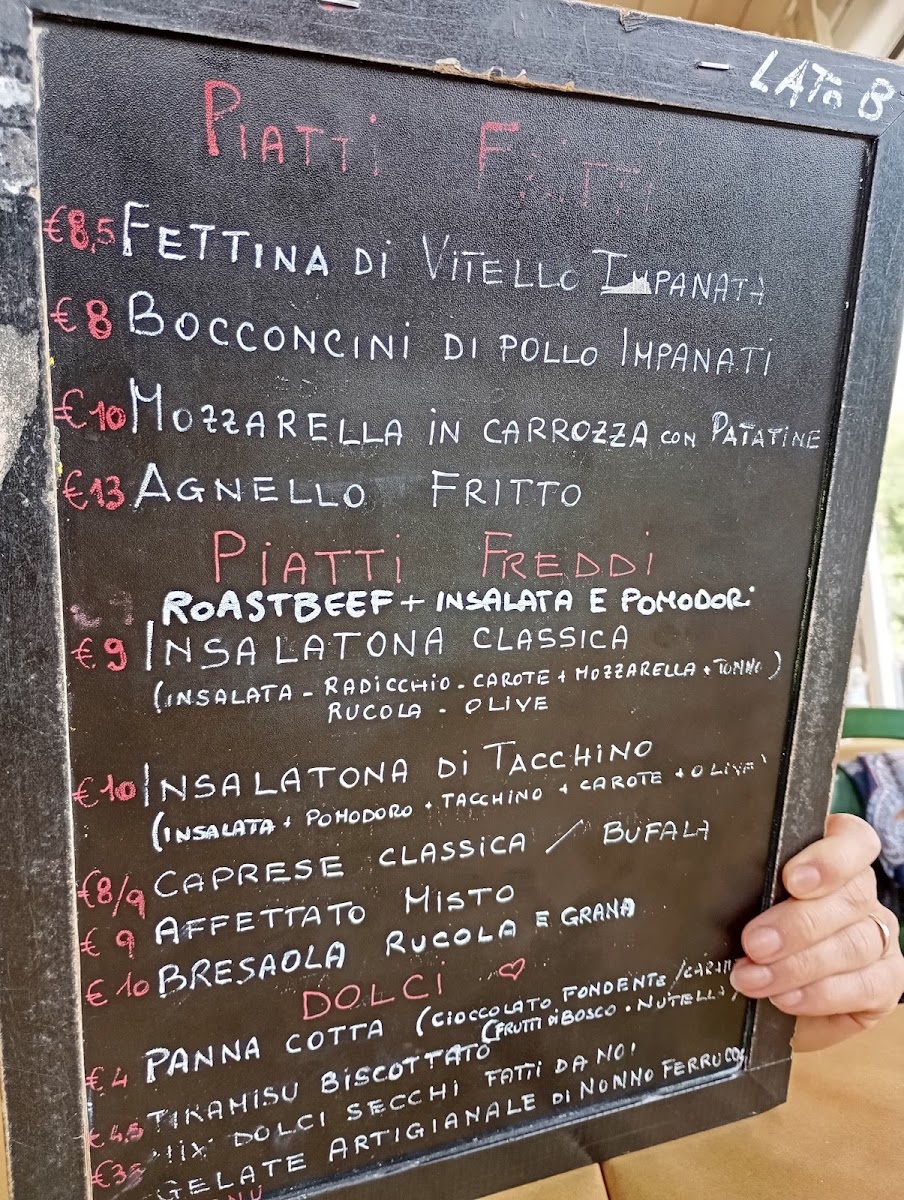 LATO B
PIATTI FRITTI
€8,5 FETTINA DI VITELLO IMPANATA
€8 BOCCONCINI DI POLLO IMPANATI
€10 MOZZARELLA IN CARROZZA CON PATATINE
€13 AGNELLO FRITTO
PIATTI FREDDI
ROASTBEEF + INSALATA E POMODORI
€9 INSALATONA CLASSICA
(INSALATA - RADICCHIO - CAROTE + MOZZARELLA + TONNO)
RUCOLA - OLIVE
€10 INSALATONA DI TACCHINO
(INSALATA + POMODORO + TACCHINO + CAROTE + OLIVE)
€8/9 CAPRESE CLASSICA / BUFALA
€9 AFFETTATO MISTO
€10 BRESAOLA RUCOLA E GRANA
DOLCI ♡
€4 PANNA COTTA (CIOCCOLATO FONDENTE /
(FRUTTI DI BOSCO - NUTELLA)
€4,5 TIRAMISU BISCOTTATO
€3 MIX DOLCI SECCHI FATTI DA NOI
GELATE ARTIGIANALE DI NONNO FERRUCCIO